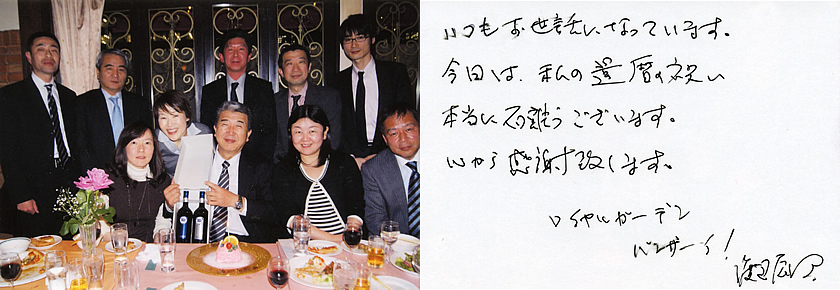 いつもお世話になっています。
今日は、私の還暦の祝い
本当に有難うございます。
心から感謝致します。
ロイヤルガーデン
バンザーイ!